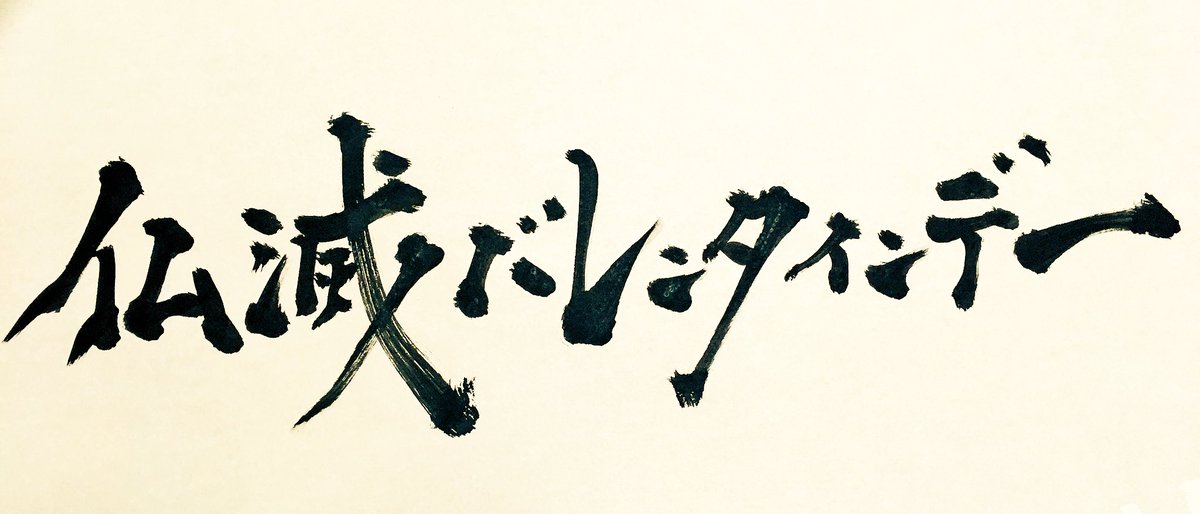 仏滅バレンタインデー